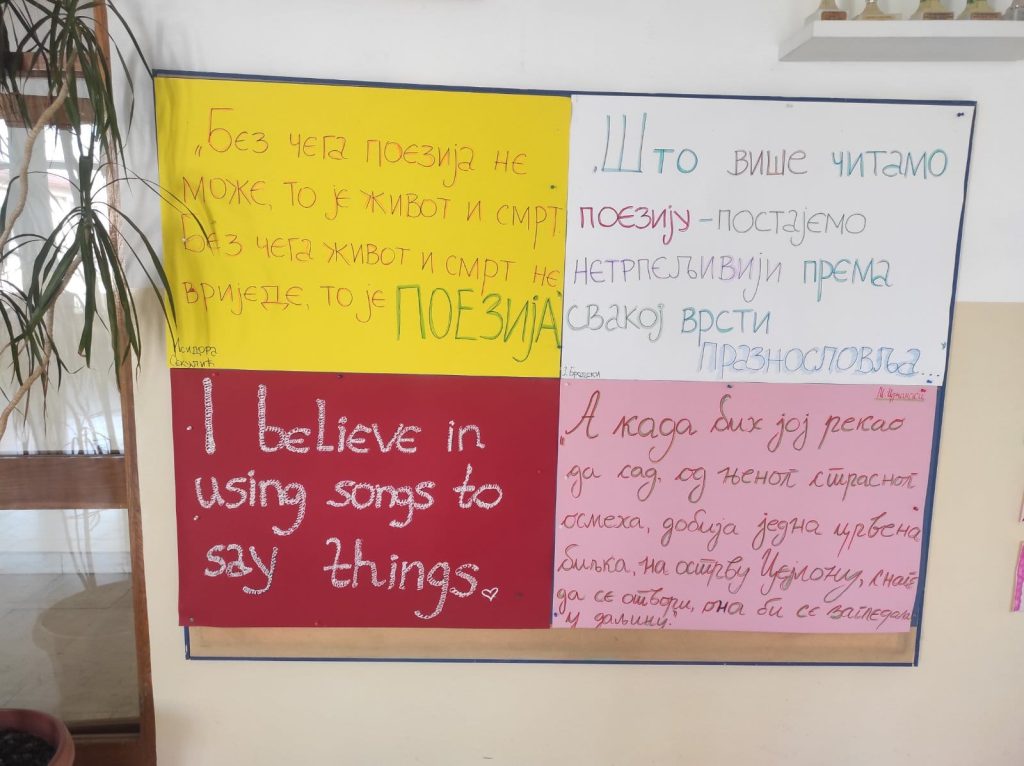 „Без чега поезија не
може, то је живот и смрт.
Без чега живот и смрт не
вриједе, то је ПОЕЗИЈА
Исидора
Секулић
„Што више читамо
поезију - постајемо
нетрпељивији према
свакој врсти
празнословља...
Ј. Бродски
I believe in
using songs to
say things.
М. Црњански
„А када бих јој рекао
да сад, од њеног страсног
осмеха, добија једна црвена
биљка, на острву Цејлону, снаге
да се отвори, она би се загледала
у даљину."